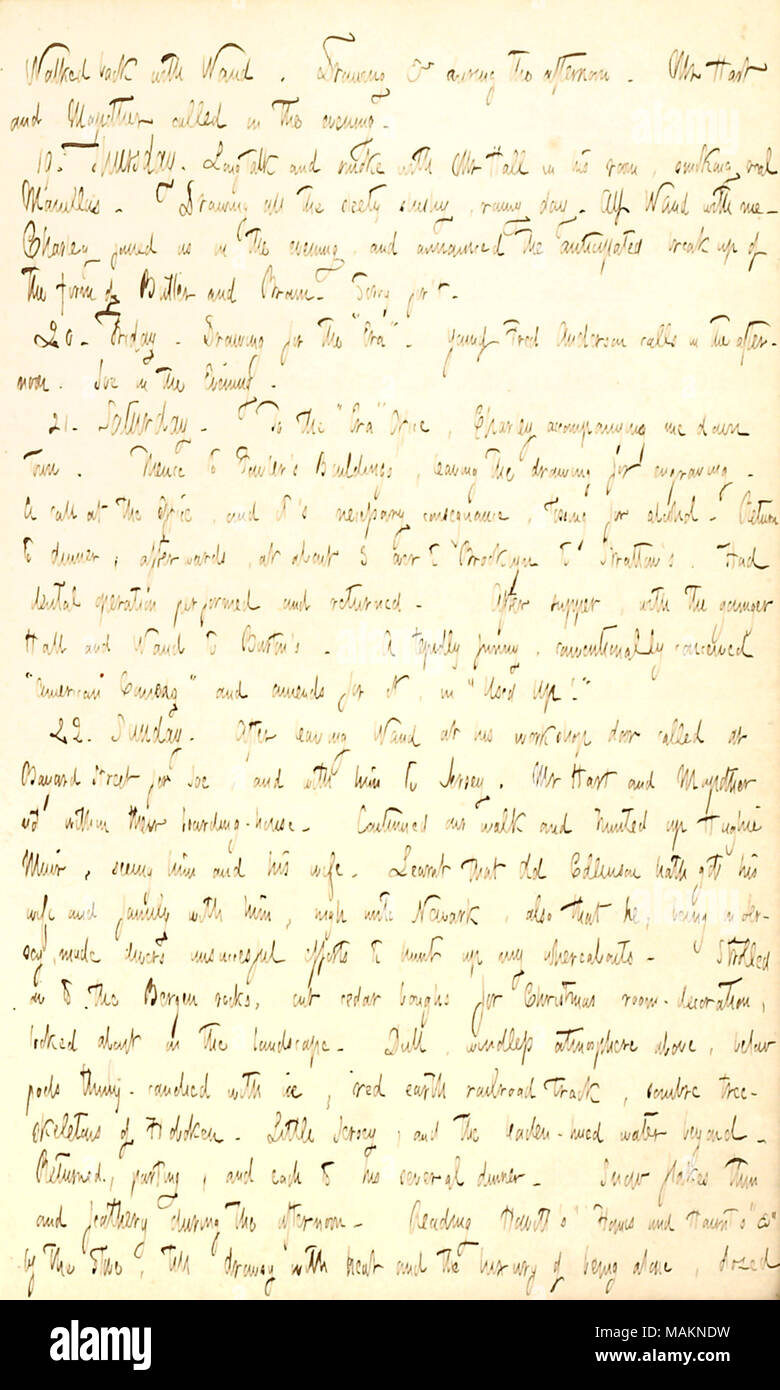 Walked back with Waud. Drawing &c during the afternoon. Mr Hart
and Mapother called in the evening.
19. Thursday. Long talk and smoke with Mr Hall in his room, smoking real
Manillas. Drawing all the sleety slushy, rainy day. Alf Waud with me.
Charley joined us in the evening, and announced the anticipated break up of
the firm of Butler and Brown. Sorry for't.
20. Friday. Drawing for the "Era". Young Fred Anderson calls in the after-
noon. Joe in the Evening.
21. Saturday. To the "Era" Office, Charley acompanying me down
town. Thence to Fowler's Buildings, leaving the drawing for engraving.
A call at the Office, and it's necessary consequence, tossing for alcohol. Return
to dinner, afterwards, at about 3 over to Brooklyn to Stratton's. Had
dental operation performed and returned. After supper, with the younger
Hall and Waud to Burton's. A tepidly funny, conventionally conceived
"American Comedy" and amends for it, in "Used Up!"
22. Sunday. After leaving Waud at his workshop door called at
Bayard Street for Joe, and with him to Jersey. Mr Hart and Mapother
not within their boarding-house. Continued our walk and hunted up Hughie
Muir, seeing him and his wife. Learnt that Old Edlinson hath got his
wife and family with him, nigh unto Newark, also that he, being in Jer-
sey, made divers unsuccessful efforts to hunt up my whereabouts. Strolled
on to the Bergen rocks, cut cedar boughs for Christmas room-decoration,
looked about on the landscape. Dull, windless atmosphere above, below
pools thinly-candied with ice, red earth railroad track, sombre tree-
skeletons of Hoboken. Little Jersey, and the leaden-hued water beyond.
Returned, parting, and each to his several dinner. Snow flakes thin
and feathery during the afternoon. Reading Howitt's "Homes and Haunts" &c
by the stove, till drowsy with heat and the luxury of being alone, dozed
alamy
Image ID: MAKNDW
www.alamy.com